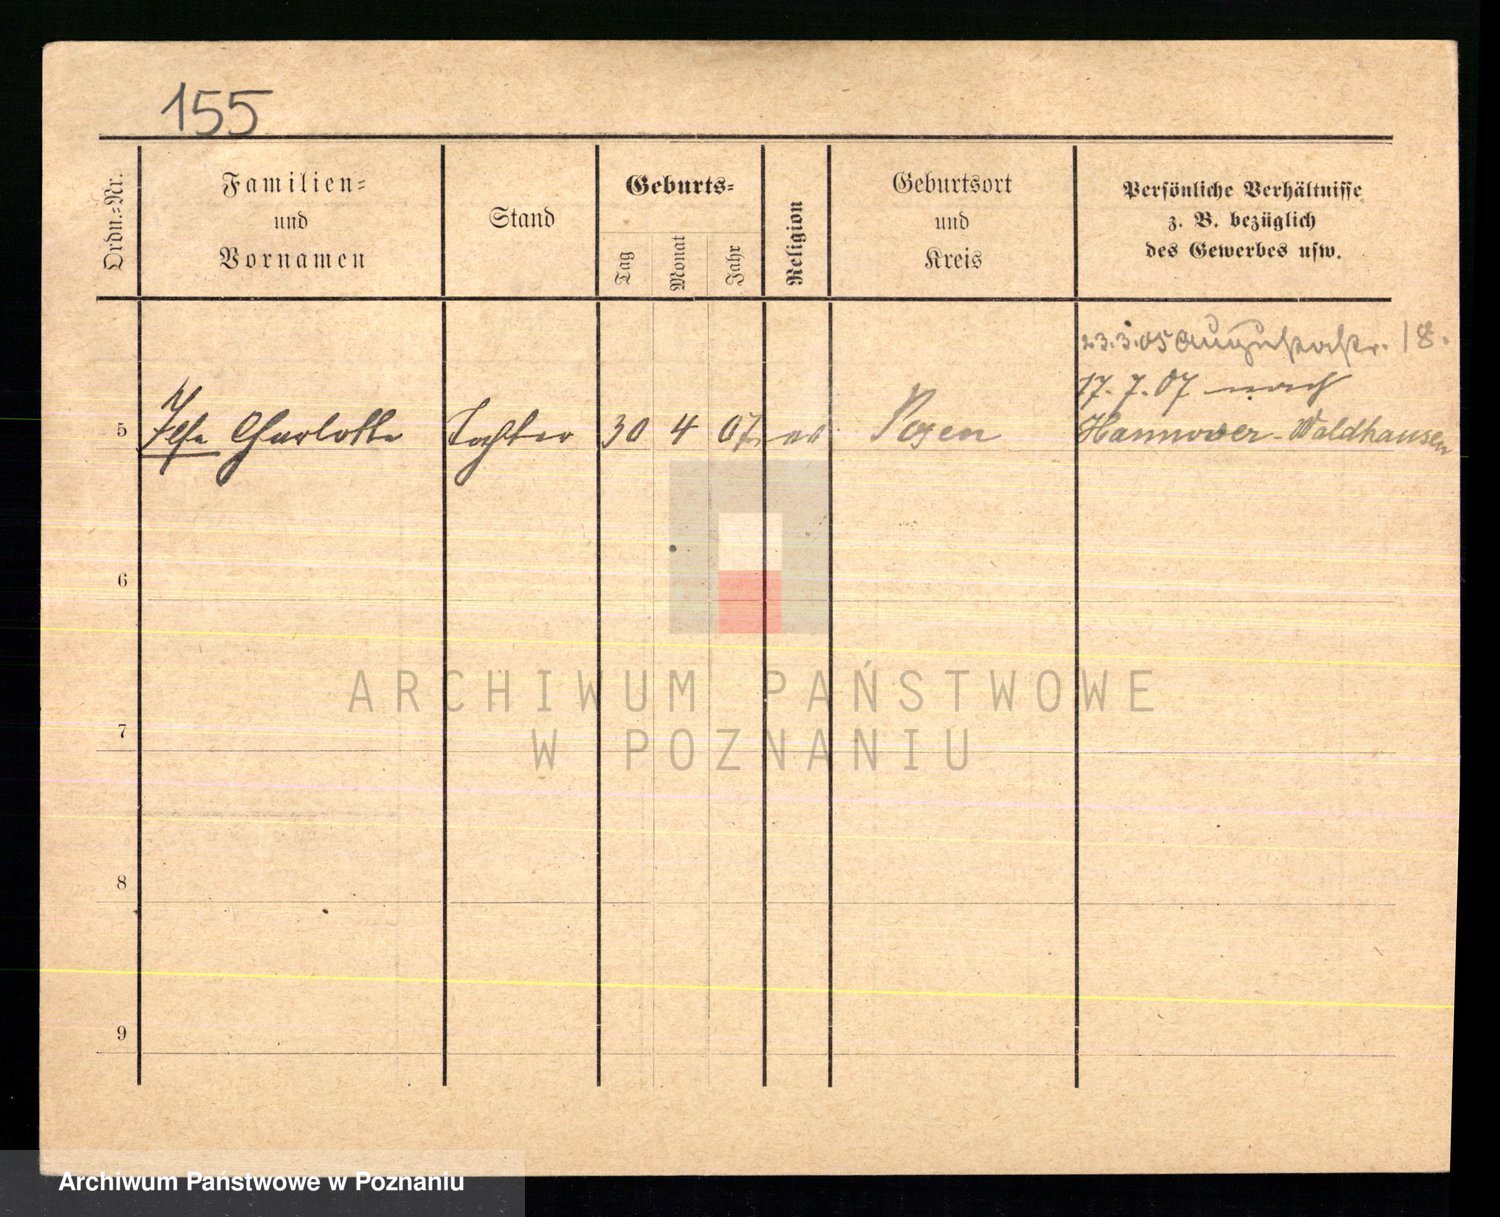 155
Ordn.-Nr.
Familien-
und
Vornamen
Stand
Geburts-
Tag
Monat
Jahr
Religion
Geburtsort
und
Kreis
Persönliche Verhältnisse
z. B. bezüglich
des Gewerbes usw.
23.3.05 Augustastr. 18.
17.7.07 nach
5 Ilse Charlotte Tochter 30 4 07 ev Posen Hannover-Waldhausen
6
ARCHIWUM PAŃSTWOWE
7
W POZNANIU
8
9
Archiwum Państwowe w Poznaniu